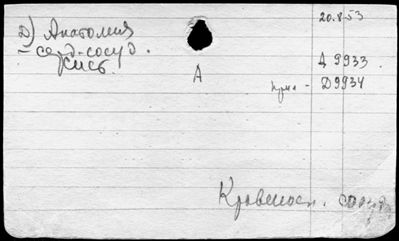 20.8.53
Д) Анатомия
– серд.-сосуд.
сист.
А
Д 9933
– D9934
Кровеносн. сосуд.